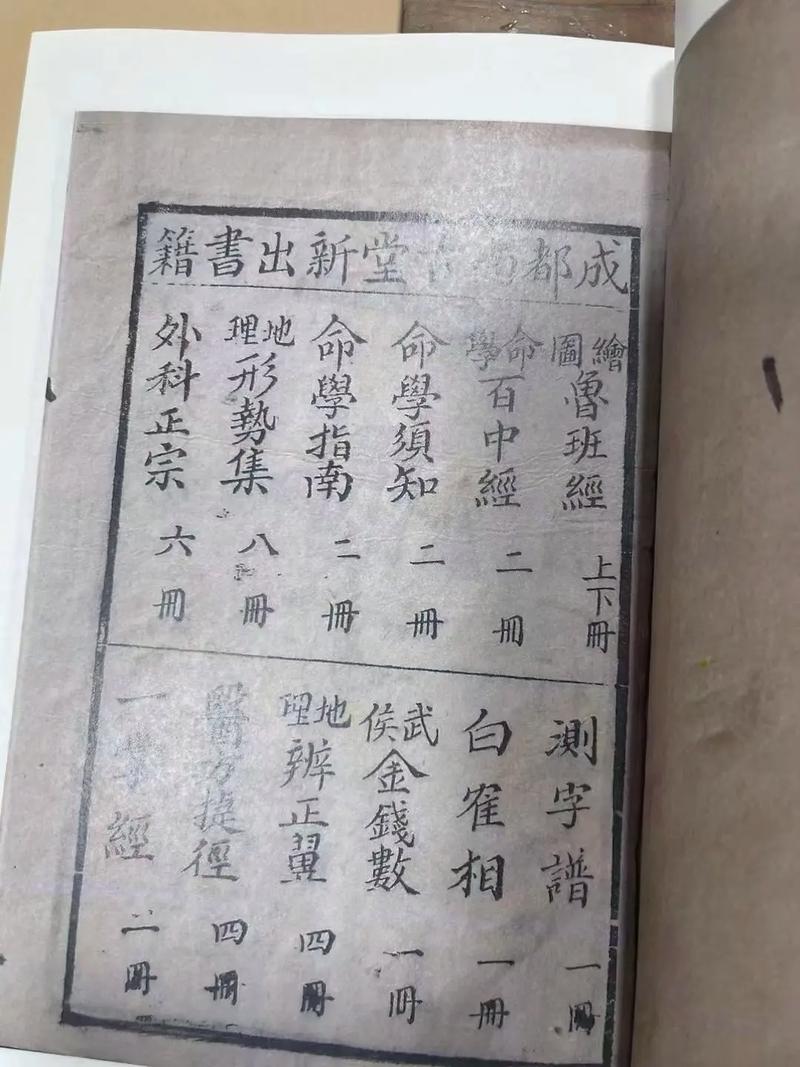 成都古堂新出書籍
繪圖魯班經 上下冊
命學百中經 二冊
命學須知 二冊
命學指南 二冊
地理形勢集 八冊
外科正宗 六冊
測字譜 一冊
白寉相 一冊
武侯金錢數 一冊
地理辨正翼 四冊
醫方捷徑 四冊
一掌經 二冊